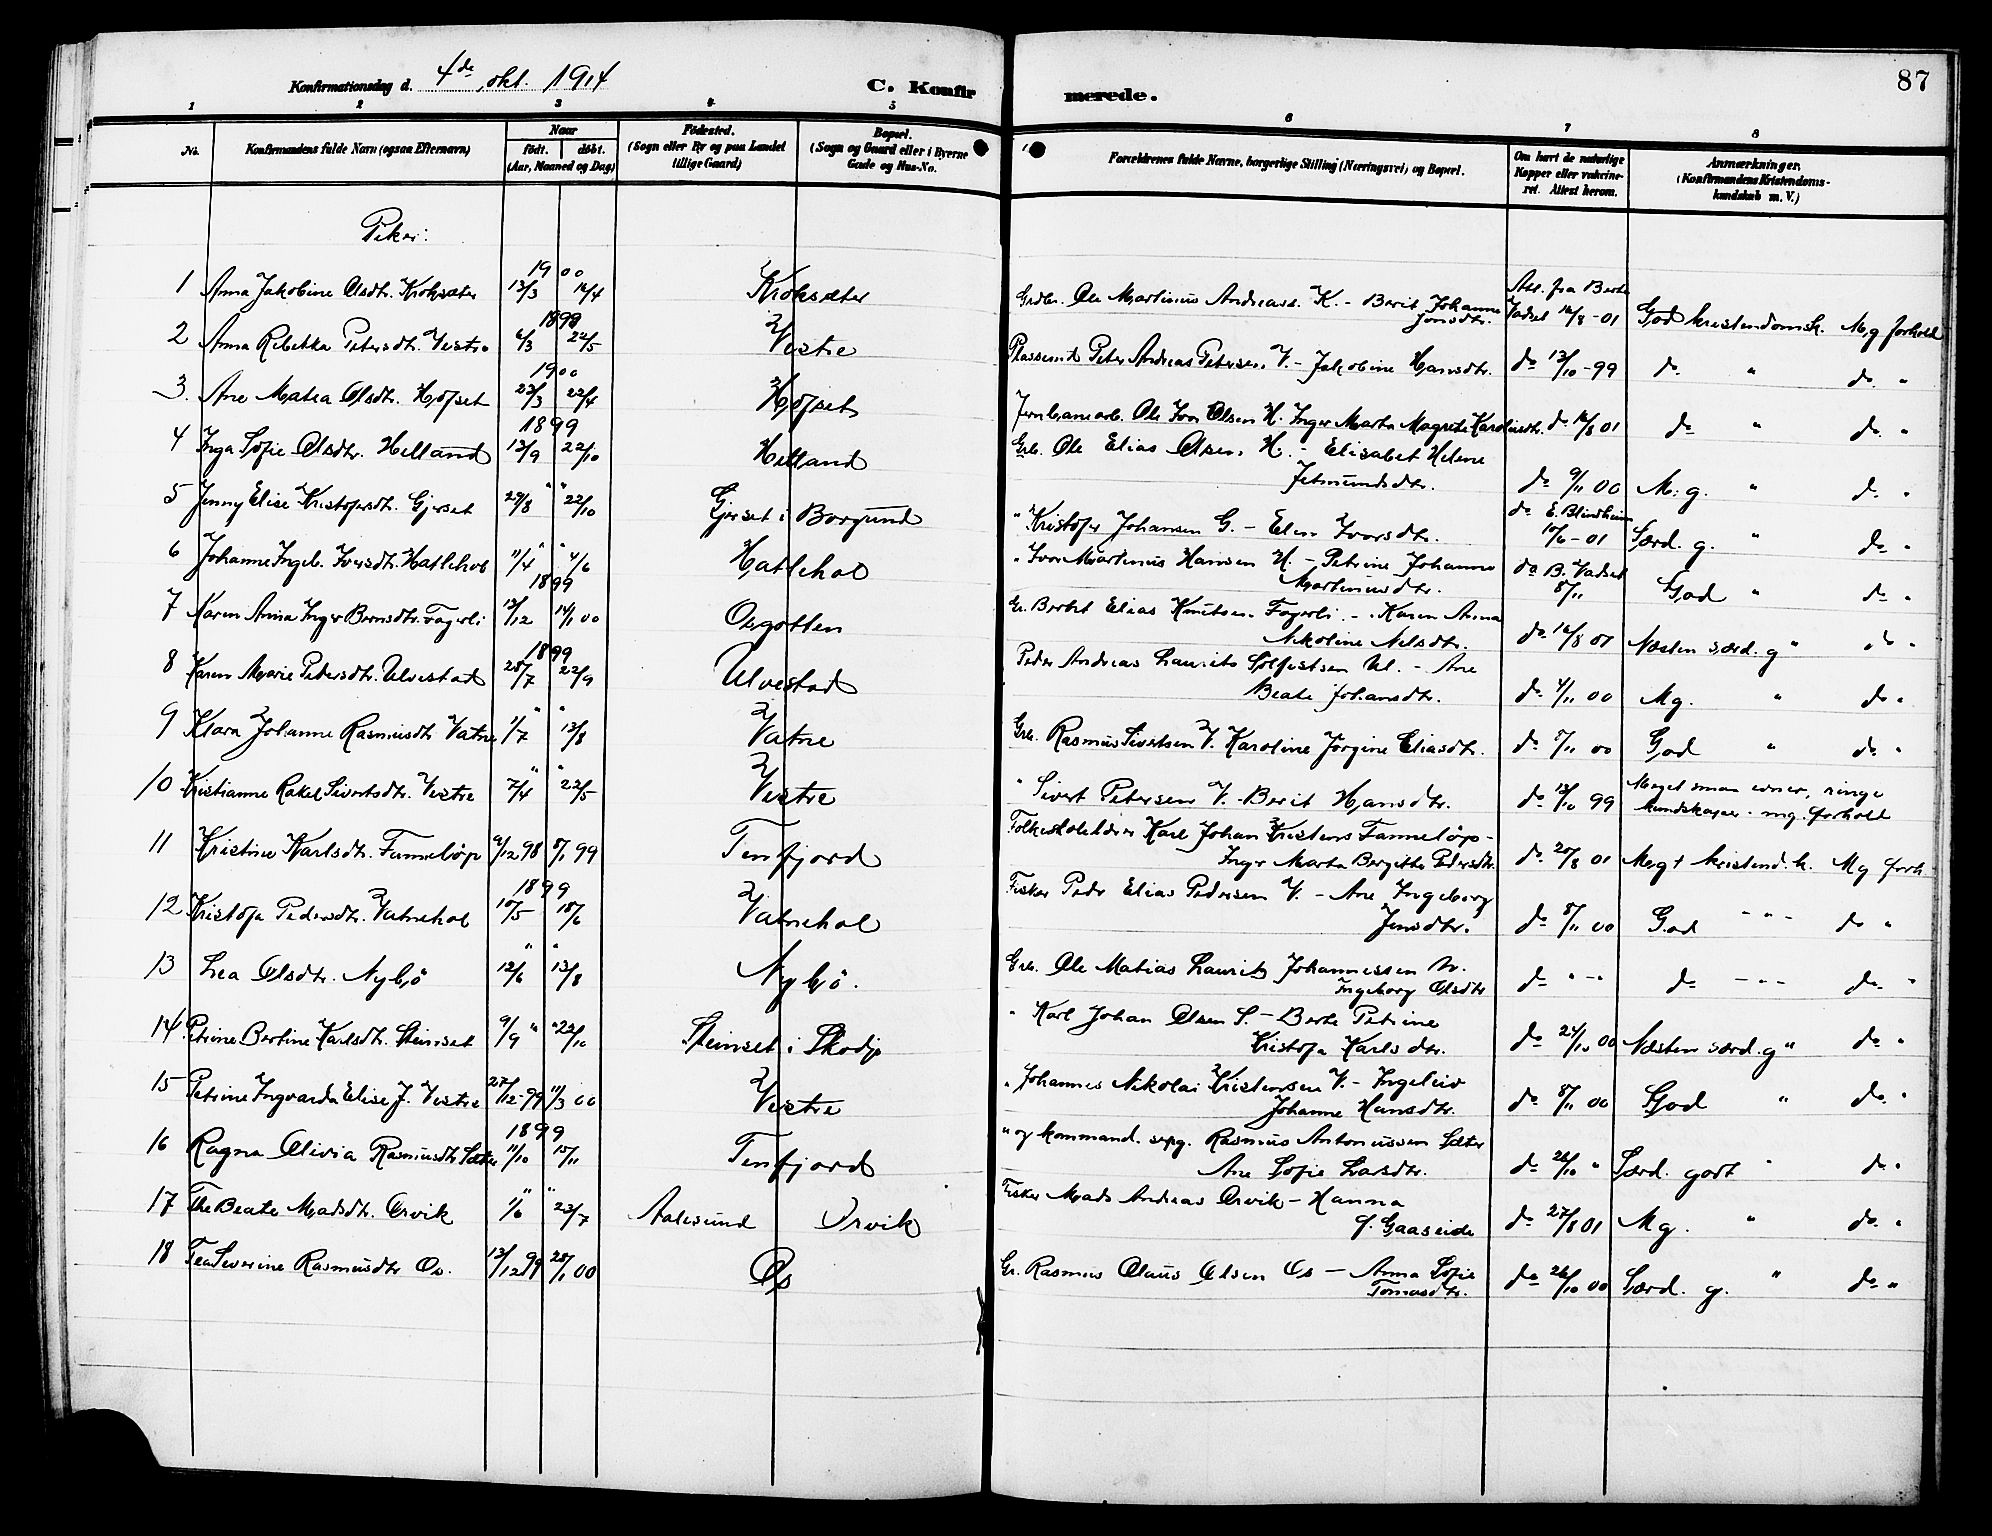 Konfirmationsdag d. 4de okt. 1914
C. Konfir
merede.
87
1 2 3 4 5 6 7 8
No.
Konfirmandens fulde Navn (ogsaa Efternavn)
Naar
født. døbt.
(Aar, Maaned og Dag)
Fødested.
(Sogn eller By og paa Landet
tillige Gaard)
Bopæl.
(Sogn og Gaard eller i Byerne
Gade og Hus-No.
Forældrenes fulde Navne, borgerlige Stilling (Næringsvei) og Bopæl.
Om havt de naturlige
Kopper eller vakcine-
ret. Attest herom.
Anmærkninger.
(Konfirmandens Kristendoms-
kundskab m. V.)
Piker:
1900
1 Anna Jakobine Olsdtr. Kroksæter 13/3 16/4 Kroksæter Grdbr. Ole Martinius Andreass. K. - Berit Johanne Jonsdtr. Att. fra Berte Vadset 16/8-01 God kristendomsk. M.g forhold
1899
2 Anna Rebekka Petersdtr. Vestre 6/3 22/5 Vestre Plassemd Peter Andreas Petersen V. - Jakobine Hansdtr. do 13/10-99 do. " do. "
1900
3. Ane Matea Olsdtr. Hofset 23/3 22/4 Hofset Jernbanearb. Ole Ivar Olsen H. Inger Marta Magrete Karolusdtr. do 16/8 01 do " do. "
1899
4 Inga Sofie Olsdtr. Helland 13/9 22/10 Helland Grb. Ole Elias Olsen H. - Elisabet Helene Jetmundsdtr. do 9/11 00 M.g. " do "
5 Jenny Elise Kristofersdtr. Gjerset 29/8 " " 22/10 Gjerset i Borgund " Kristofer Johansen G. - Elen Ivarsdtr. do E. Blindheim 10/6-01 Særd. g. " do "
6 Johanne Ingeb. Iversdtr. Hatlehol 11/4 " " 4/6 Hatlehol " Iver Martinus Hansen H. - Petrine Johanne Martinusdtr. do B. Vadset 8/11 God " do "
1899
7 Karen Anna Inger Berntsdtr. Fagerli 13/12 14/1 00 Osgotten Gr. Berthel Elias Knutsen Fagerli - Karen Anna Nikoline Nilsdtr. do 16/8 01 Næsten særd. g " do "
1899
8 Karen Marie Pedersdtr. Ulvestad 28/7 22/9 Ulvestad Peder Andreas Laurits Solfestsen Ul. - Ane Beate Johansdtr. do 4/11 00 Mg. " do "
9 Klara Johanne Rasmusdtr Vatne 1/7 " " 13/8 Vatne Grb. Rasmus Sivertsen V. Karoline Jørgine Eliasdtr. do 8/11 00 God " do "
10 Kristianne Rakel Sivertsdtr. Vestre 7/4 " " 22/5 Vestre " Sivert Petersen V. - Berit Hansdtr. do 13/10 99 Meget smaa evner, ringe kundskaper. mg. forhold
11 Kristine Karlsdtr. Fannelöp 9/12 98 8/1 99 Tenfjord Folkeskolelærer Karl Johan Kristens Fannelöp - Inger Marta Bergitte Pedersdtr. do 20/8 01 Megt kristend. k. Mg forh.
1899
12 Kristofa Pedersdtr. Vatnehol 10/5 18/6 Vatnehol Fisker Peder Elias Pedersen V. - Ane Ingeborg Jensdtr. do 8/11 00 God - " - do "
13 Lea Olsdtr. Nybö 12/6 " " 13/8 Nybö. Grb. Ole Matias Laurits Johannessen N. Ingeborg Olsdtr do " - " do - " - do. "
14 Petrine Bertine Karlsdtr. Steinset 9/9 " " 22/10 Steinset i Skodje " Karl Johan Olsen S. - Berte Petrine Kristofa Karlsdtr. do 24/10 00 Næsten særd. g " do. "
15 Petrine Ingvarda Elise J. Vestre 27/12-99 11/3 00 Vestre " Johannes Nikolai Kristensen V. - Ingeleiv Johanne Hansdtr. do 8/11 00 God " do. "
1899
16 Ragna Olivia Rasmusdtr Sæter 11/10 15/11 Tenfjord " og kommand. serg. Rasmus Antoniussen Sæter Ane Sofie Larsdtr. do 26/10 " Særd. godt " do. "
17 The Beate Madsdtr. Orvik 1/6 " " 23/7 Aalesund Orvik Fisker Mads Andreas Orvik - Hanna f. Gaaseide do 27/8 01 Mg. " do. "
18 Tea Severine Rasmusdtr Os. 13/12 99 28/1 00 Os Gr. Rasmus Claus Olsen Os - Anna Sofie Tomasdtr. do 26/10 00 Særd. g. " do "